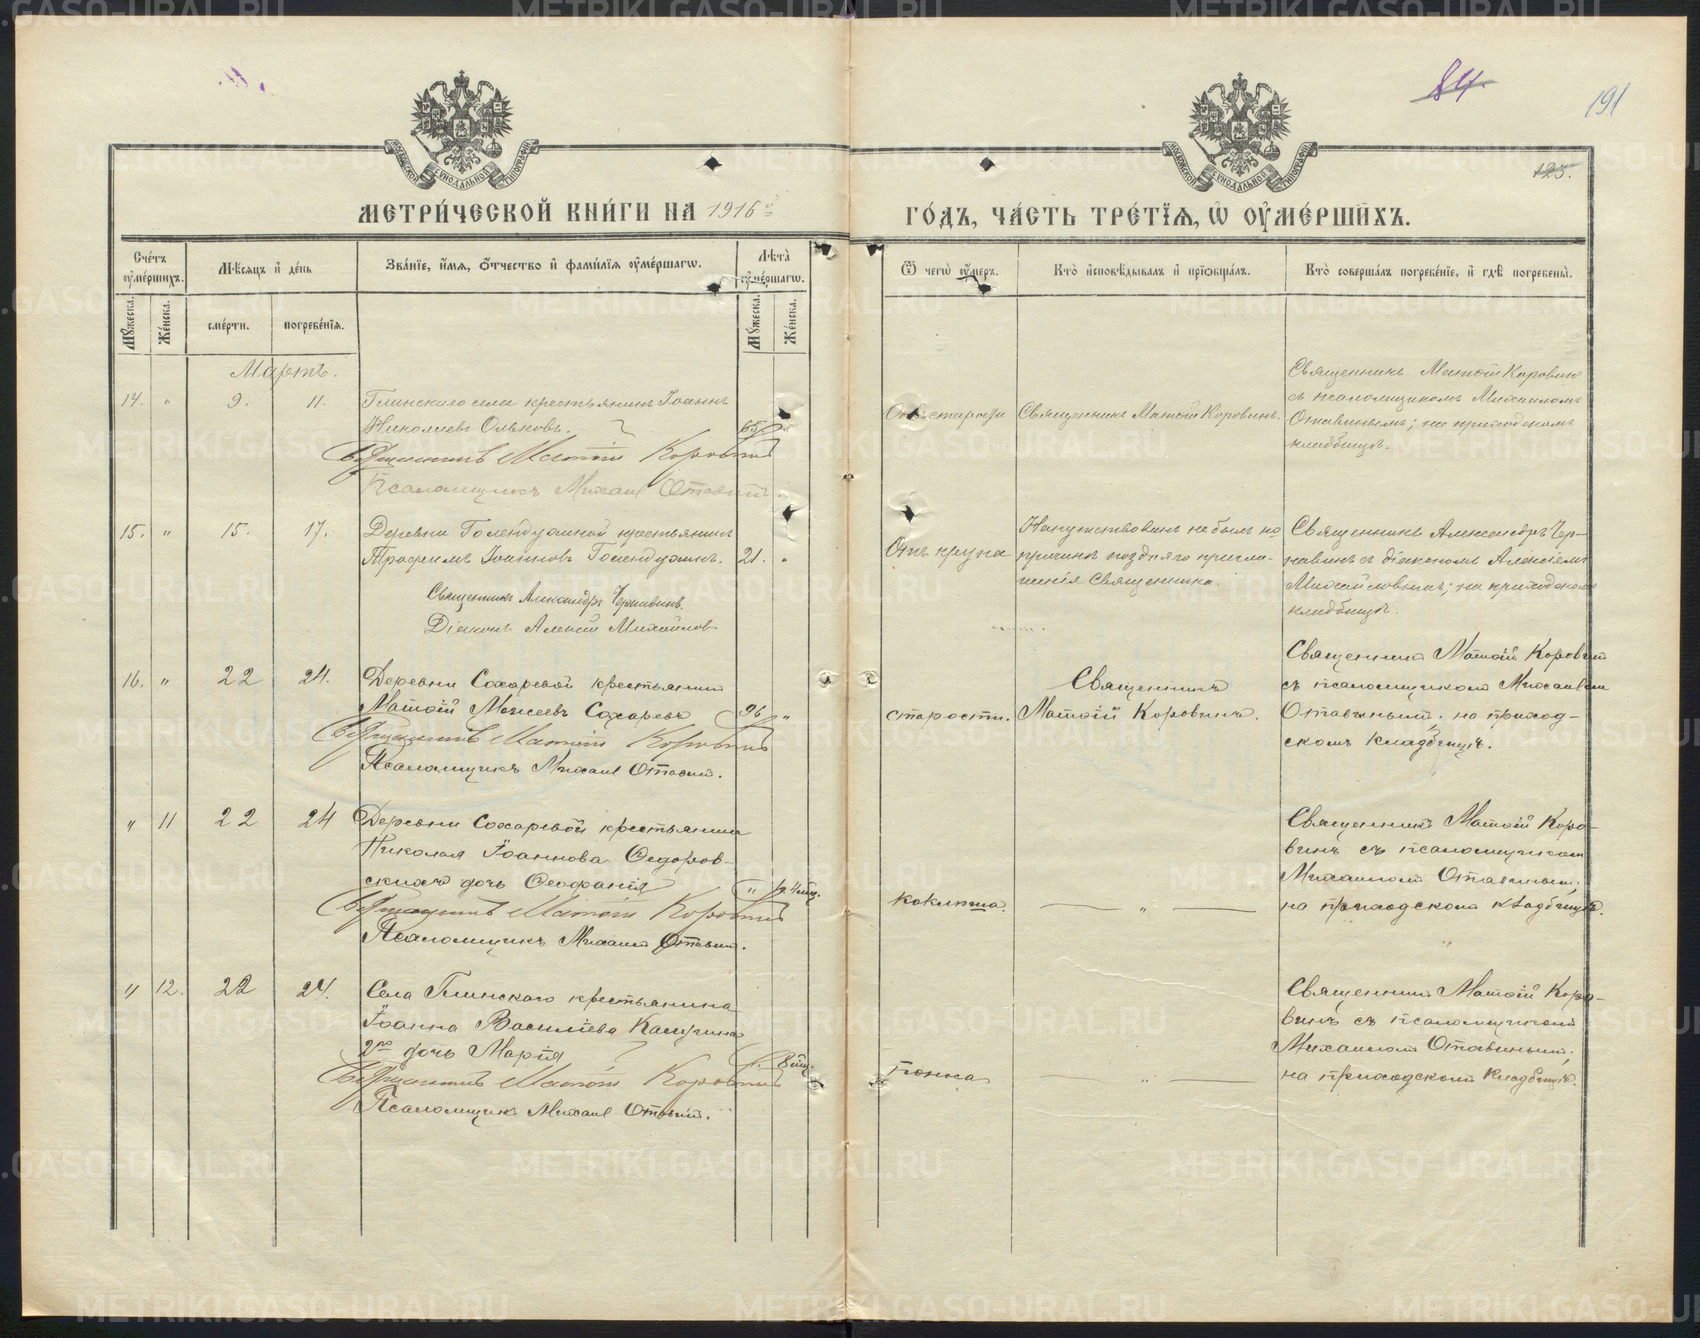 84
191
125.
МЕТРИ́ЧЕСКОЙ КНИ́ГИ НА 1916
ГО́ДЪ, ЧА́СТЬ ТРЕ́ТЇЯ, Ѡ҆ ОУ҆МЕ́РШИХЪ.
Сче́тъ оу҆ме́ршихъ.
Мꙋ́жеска.
Же́нска.
Мѣ́сяцъ и҆ де́нь
сме́рти.
погребе́нїя.
Зва́нїе, и҆́мя, ѻ҆́тчество и҆ фами́лїя оу҆ме́ршагѡ.
Лѣ́та оу҆ме́ршагѡ.
Мꙋ́жеска.
Же́нска.
Ѿ чегѡ̀ оу҆́меръ.
Кто̀ и҆сповѣ́дывалъ и҆ прїобща́лъ.
Кто̀ соверша́лъ погребе́нїе, и҆ гдѣ̀ погребены̀.
Мартъ.
14. " 9. 11.
Глинскаго села крестьянинъ Іоаннъ
Николаевъ Ольковъ. 65 "
Священникъ Матѳій Коровинъ
Псаломщикъ Михаил Отавин.
Отъ старости
Священникъ Матѳій Коровинъ.
Священникъ Матѳій Коровинъ
съ псаломщикомъ Михаиломъ
Отавинымъ; на приходскомъ
кладбищѣ.
15. " 15. 17.
Деревни Голендухиной крестьянинъ
Трофимъ Іоанновъ Голендухинъ. 21. "
Священникъ Александръ Чернавинъ.
Діаконъ Алексій Михайлов
Отъ крупа
Напутствованъ не былъ по
причинѣ поздняго пригла-
шенія Священника.
Священникъ Александръ Чер-
навинъ съ діакономъ Алексіемъ
Михайловымъ; на приходскомъ
кладбищѣ.
16. " 22 24.
Деревни Сохаревой крестьянин
Матѳій Моисеевъ Сохаревъ 96 "
Священникъ Матѳій Коровинъ
Псаломщикъ Михаил Отавин.
старости.
Священникъ
Матѳій Коровинъ.
Священникъ Матѳій Коровин
съ псаломщиком Михаилом
Отавиным; на приход-
скомъ кладбищѣ.
" 11 22 24
Деревни Сохаревой крестьянина
Николая Іоаннова Ѳедоров-
скихъ дочь Ѳеофанія "
Священникъ Матѳій Коровинъ
Псаломщикъ Михаил Отавин.
коклюша.
"
Священникъ Матѳій Коро-
винъ съ псаломщиком
Михаилом Отавиным;
на приходском кладбищѣ.
" 12. 22 24.
Села Глинскаго крестьянина
Іоанна Василіева Калугина
2ѳ дочь Марія " 8 мц.
Священникъ Матѳій Коровинъ
Псаломщикъ Михаил Отавин.
поноса
"
Священник Матѳій Коро-
винъ съ псаломщиком
Михаилом Отавиным;
на приходском кладбищѣ.